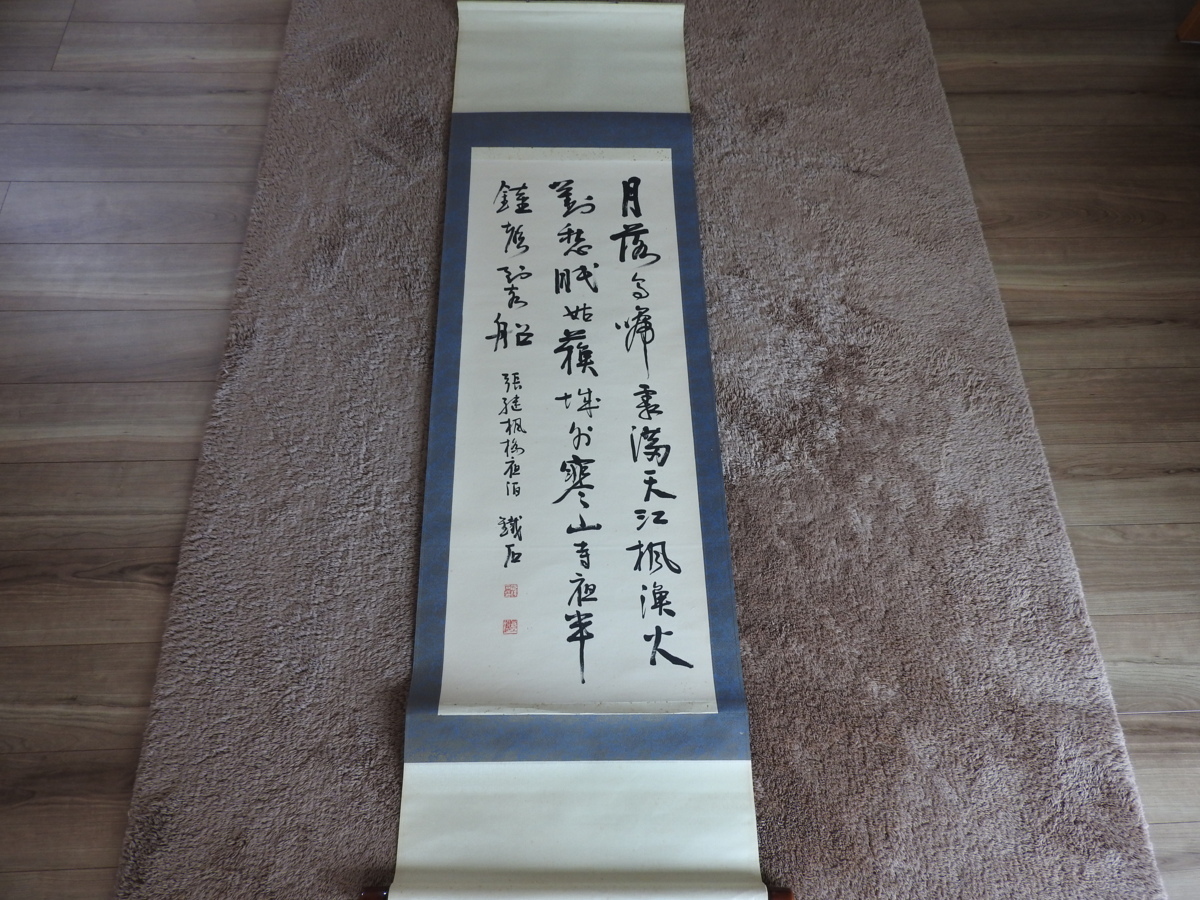 月落烏啼霜滿天江楓漁火
對愁眠姑蘇城外寒山寺夜半
鐘聲到客船
張継楓橋夜泊 鐵石